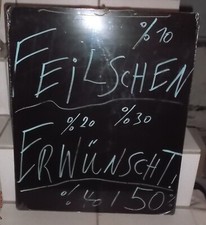 %10
FEILSCHEN
%20 %30
ERWÜNSCHT!
%40/50%